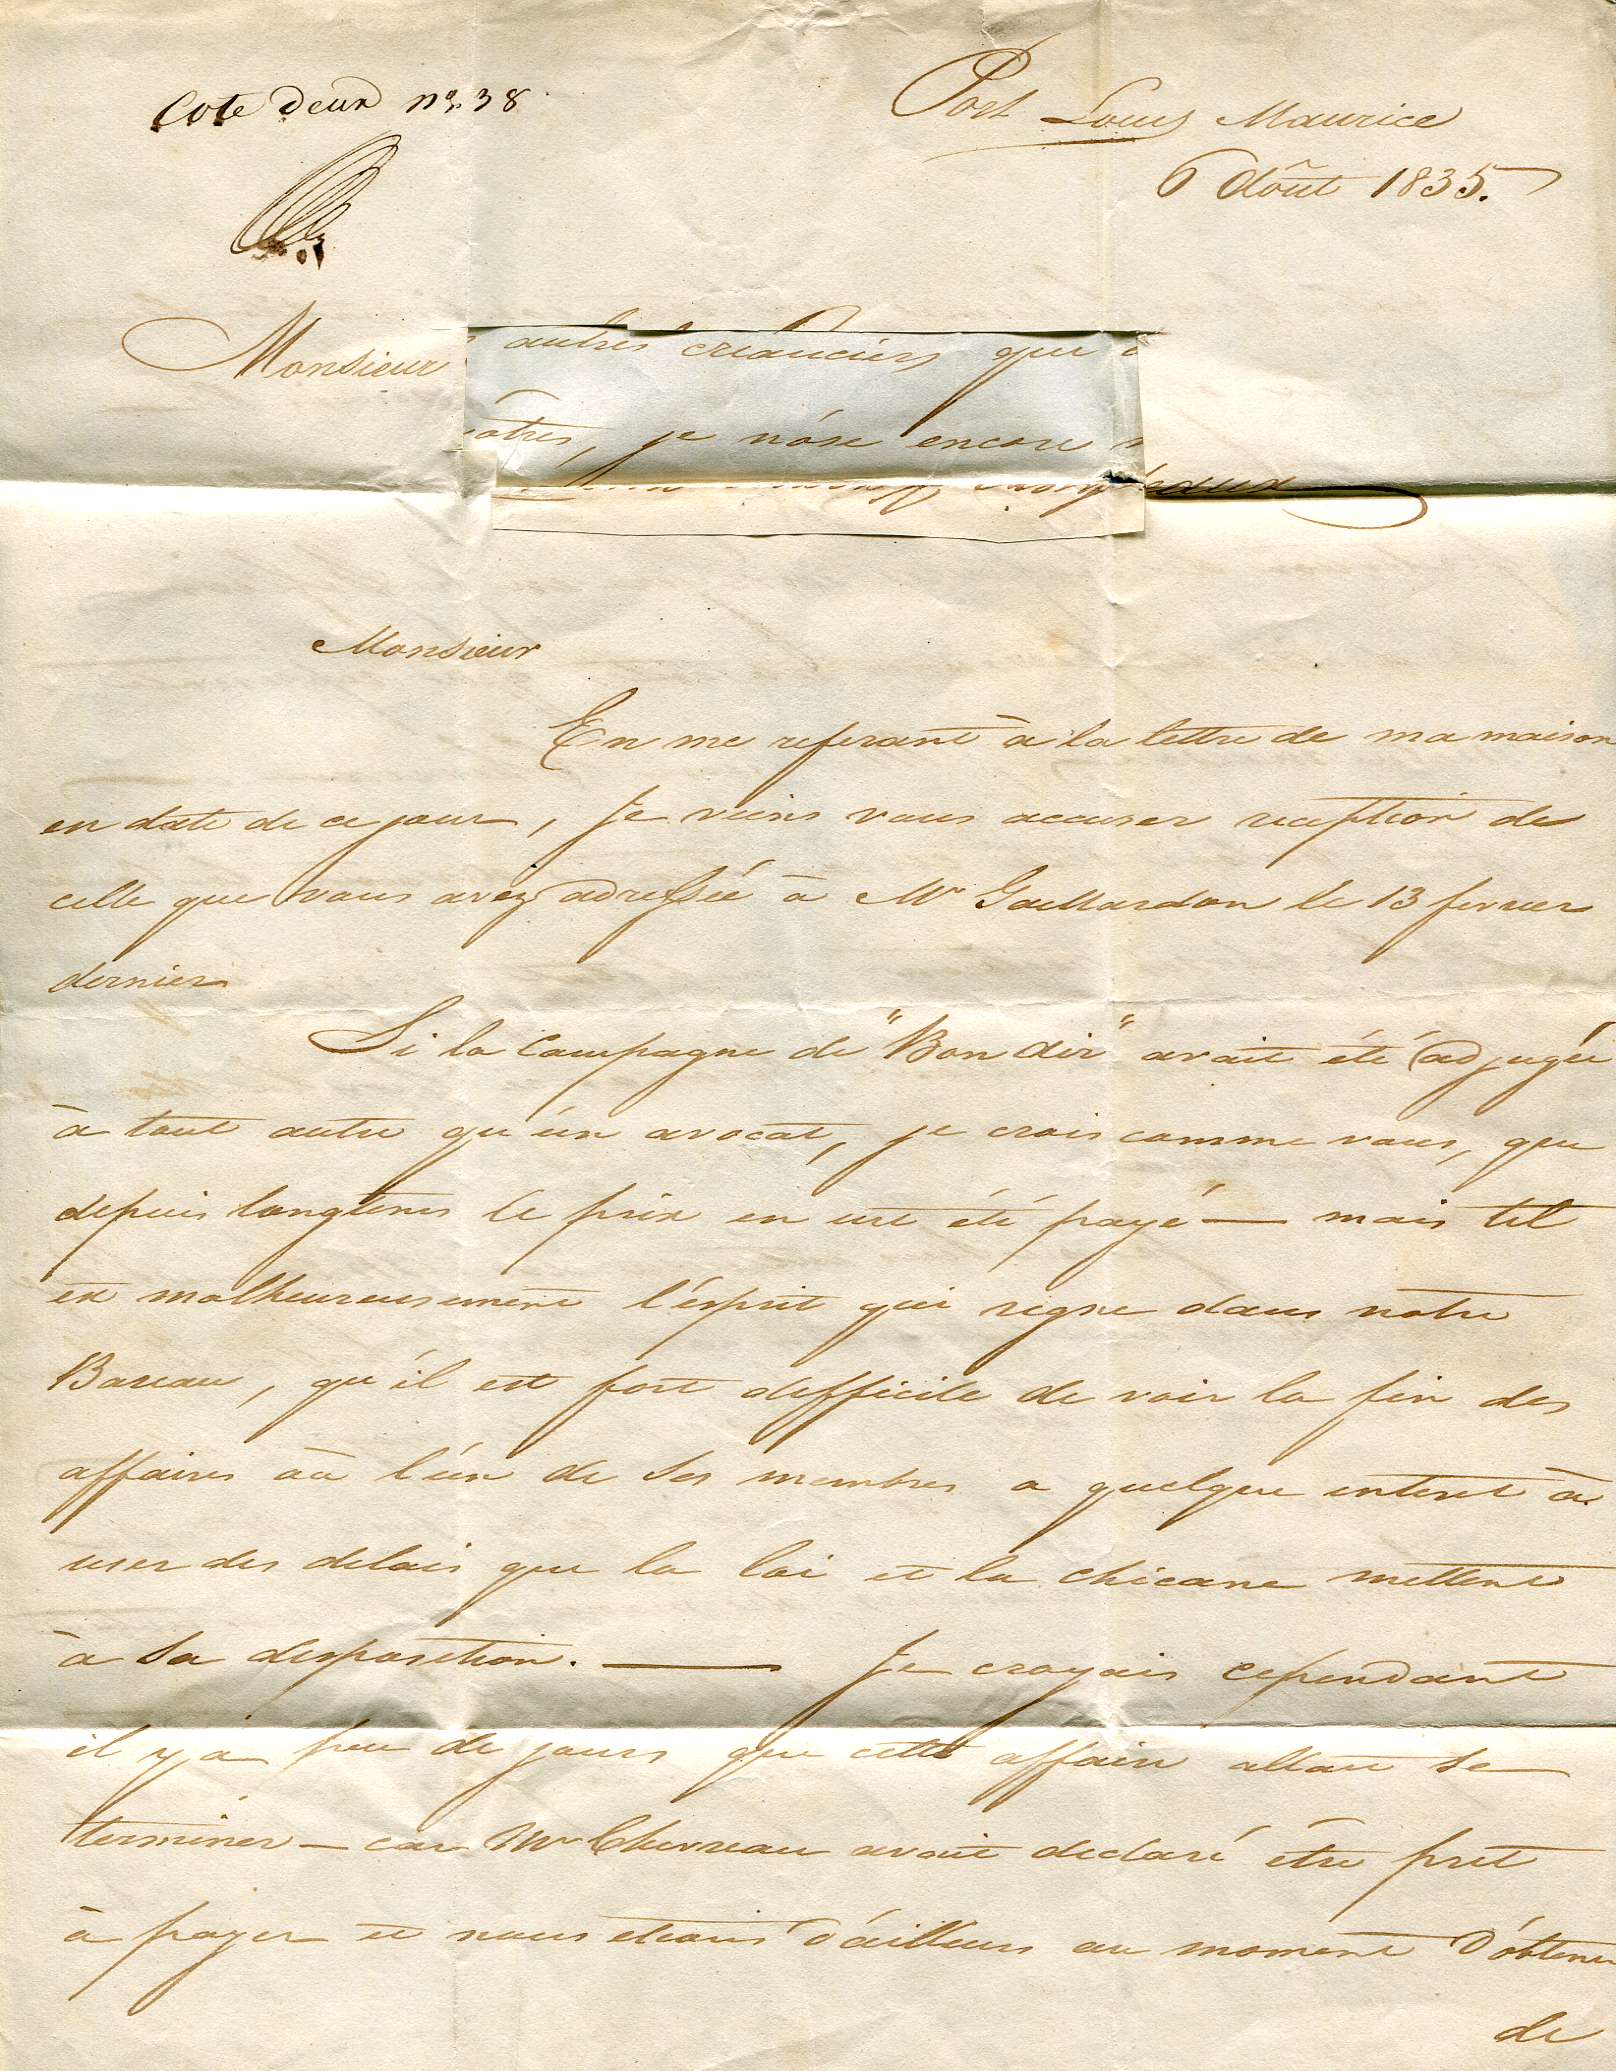 Cote deux nº. 38
Port Louis Maurice
6 Aôut 1835.
Monsieur
autres créanciers que
je n'ose encore
éaux
Monsieur
En me referant à la lettre de ma maison
en date de ce jour, Je viens vous accuser reception de
celle que vous avez adressée à Mr Gaillardon le 13 fevrier
dernier
Si la Campagne de "Bon Air" avait été adjugée
à tout autre qu'un avocat, je crois comme vous, que
depuis longtems le prix en eut été payé — mais tel
est malheureusement l'esprit qui regne dans notre
Bareau, qu'il est fort difficile de voir la fin des
affaires où l'un de ses membres a quelque interet à
user des delais que la loi et la chicane mettent
à sa disposition. — Je croyais cependant
il y a peu de jours que cette affaire allait se
terminer — car Mr Chevreau avait declaré être pret
à payer et nous etions d'ailleurs au moment d'obtenir
de